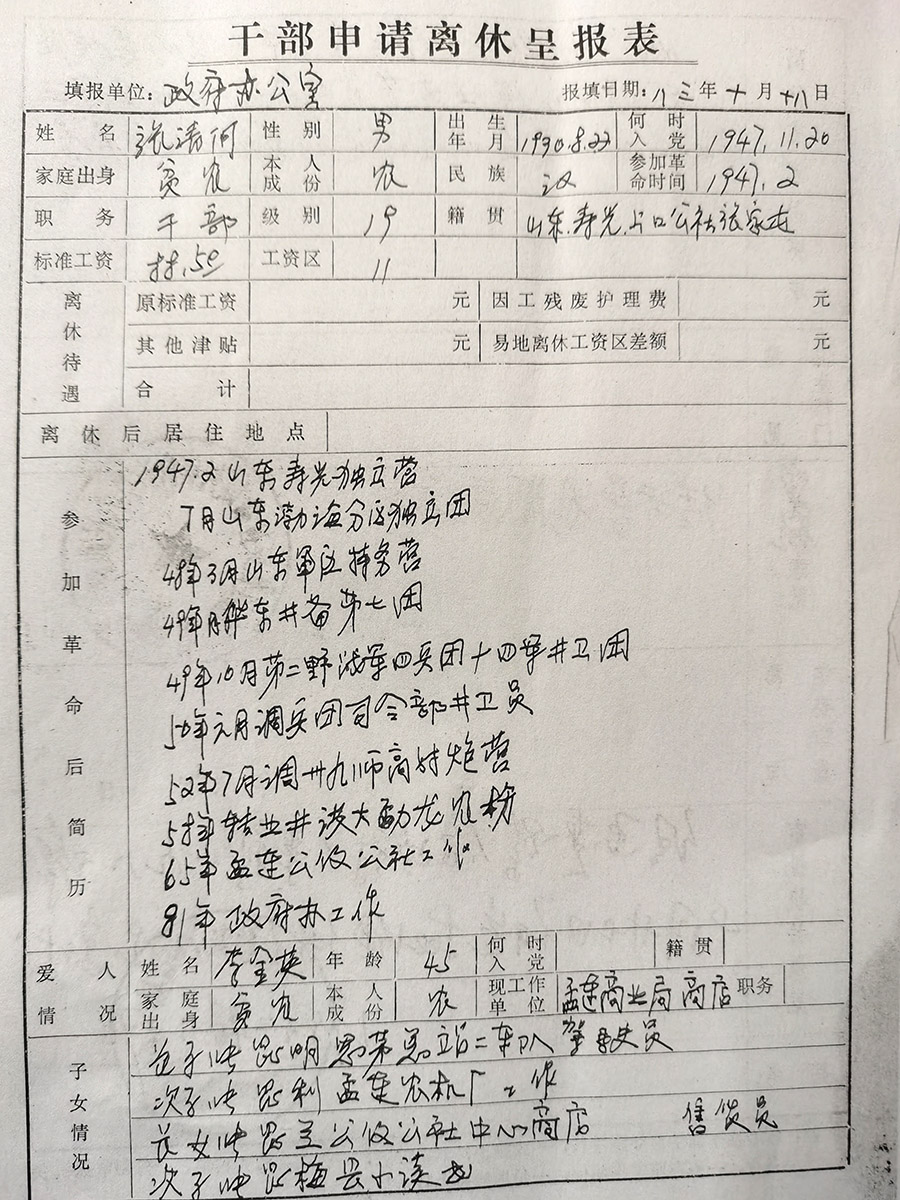 干部申请离休呈报表
填报单位：政府办公室 报填日期：八三年十月十八日
姓名 张清何 性别 男 出生年月 1930.8.22 何时入党 1947.11.20
家庭出身 贫农 本人成份 农 民族 汉 参加革命时间 1947.2
职务 干部 级别 19 籍贯 山东.寿光.上口公社张家庄
标准工资 工资区 11
离休待遇 原标准工资 元 因工残废护理费 元
其他津贴 元 易地离休工资区差额 元
合计
离休后居住地点
参加革命后简历
1947.2山东寿光独立营
7月山东渤海分区独立团
48年3月山东军区特务营
49年 华东井备第七团
49年10月第二野战军四兵团十四军井卫团
50年元月调兵团司令部井卫员
52年7月调卅九师高射炮营
58年转业井 大 龙农场
65年孟连公伩公社工作
81年政府办工作
爱人情况 姓名 李金英 年龄 45 何时入党 籍贯
家庭出身 贫农 本人成份 农 现工作单位 孟连商业局商店 职务
子女情况
长子张昆明思茅总站二车队驾驶员
次子张昆利孟连农机厂工作
长女张昆兰公伩公社中心商店 售货员
次子张昆梅县小读书